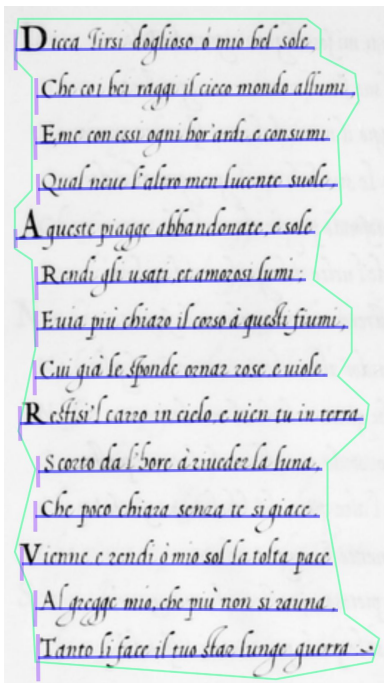 Dicea Tirsi doglioso ò mio bel sole
Che coi bei raggi il cieco mondo allumi,
E me con essi ogni hor'ardi e consumi
Qual neue l'altro men lucente suole,
A queste piagge abbandonate, e sole
Rendi gli usati, et amorosi lumi,
E uia più chiaro il corso à questi fiumi,
Cui già le sponde ornar rose, e uiole
Restisi'l carro in cielo, e uien tu in terra
Scorto da l'hore à riueder la luna,
Che poco chiara senza te si giace.
Vienne e rendi ò mio sol la tolta pace
Al gregge mio, che più non si rauna,
Tanto li face il tuo star lunge guerra